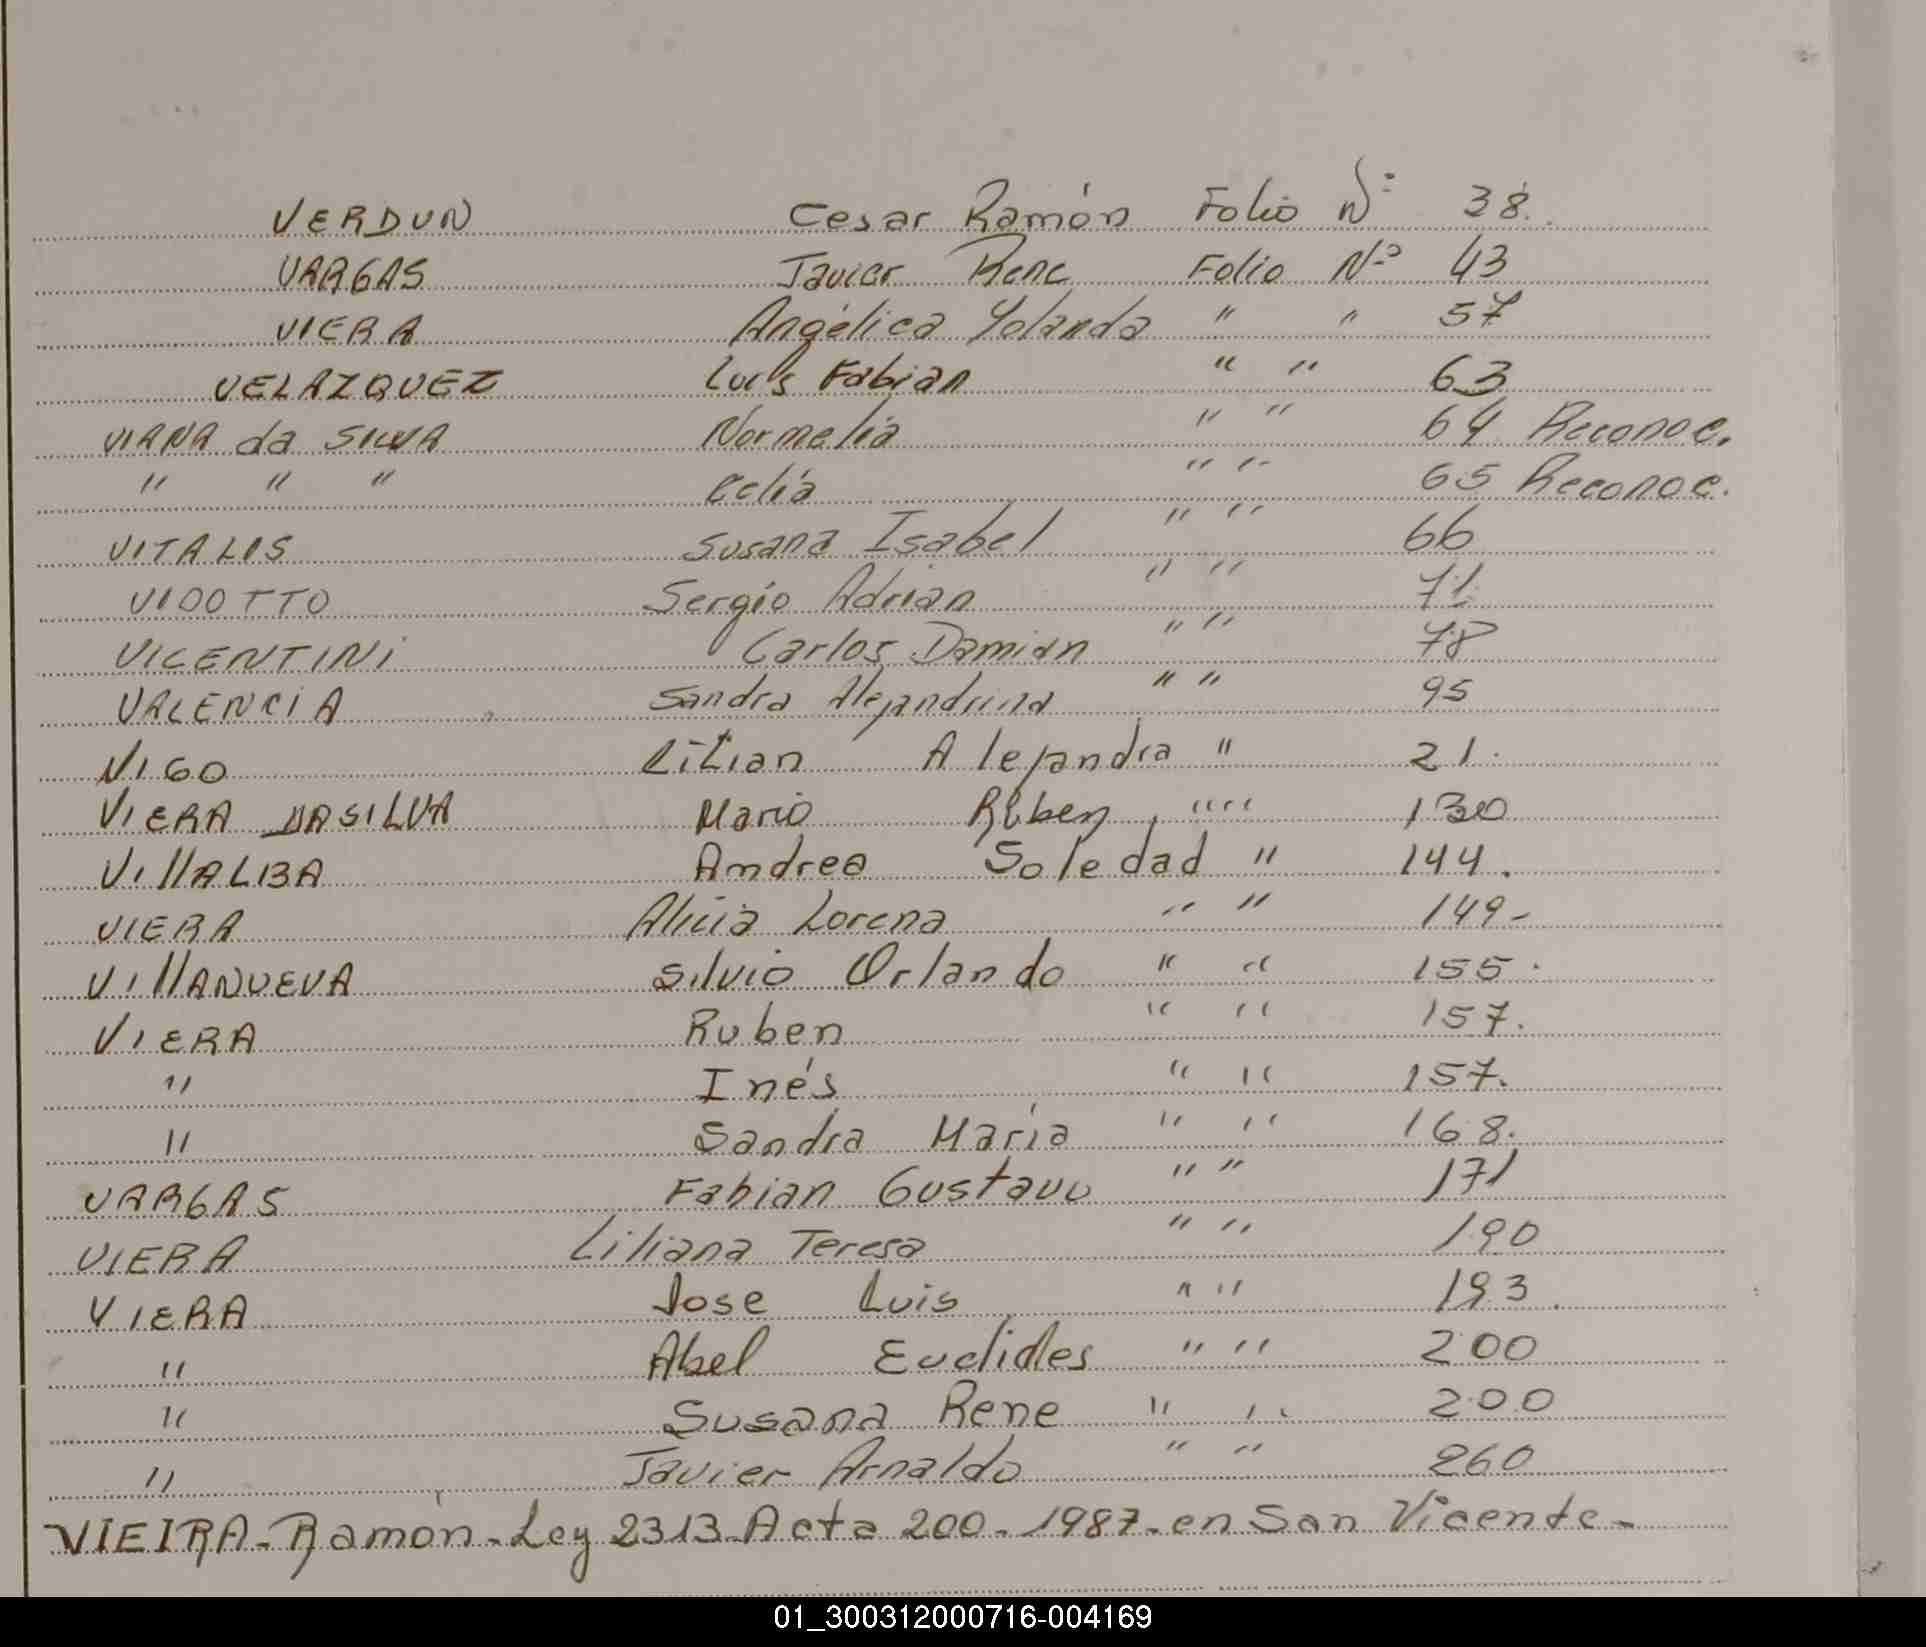 VERDUN Cesar Ramón Folio Nº 38.
VARGAS Javier Rene Folio Nº 43
VIERA Angélica Yolanda " " 57
VELAZQUEZ Luis Fabian " " 63
VIANA da SILVA Normelia " " 64 Reconoc.
" " " Celia " " 65 Reconoc.
VITALIS Susana Isabel " " 66
VIDOTTO Sergio Adrian " " 71
VICENTINI Carlos Damian " " 78
VALENCIA Sandra Alejandrina " " 95
VIGO Lilian Alejandra " 21.
VIERA DASILVA Mario Ruben " " 130
VIllALBA Andrea Soledad " 144.
VIERA Alicia Lorena " " 149-
VIllANUEVA Silvio Orlando " " 155.
VIERA Ruben " " 157.
" Inés " " 157.
" Sandra María " " 168.
VARGAS Fabian Gustavo " " 171
VIERA Liliana Teresa " " 190
VIERA Jose Luis " " 193.
" Abel Euclides " " 200
" Susana Rene " " 200
" Javier Arnaldo " " 260
VIEIRA-Ramón-Ley 2313-Acta 200-1987-en San Vicente-
01_300312000716-004169